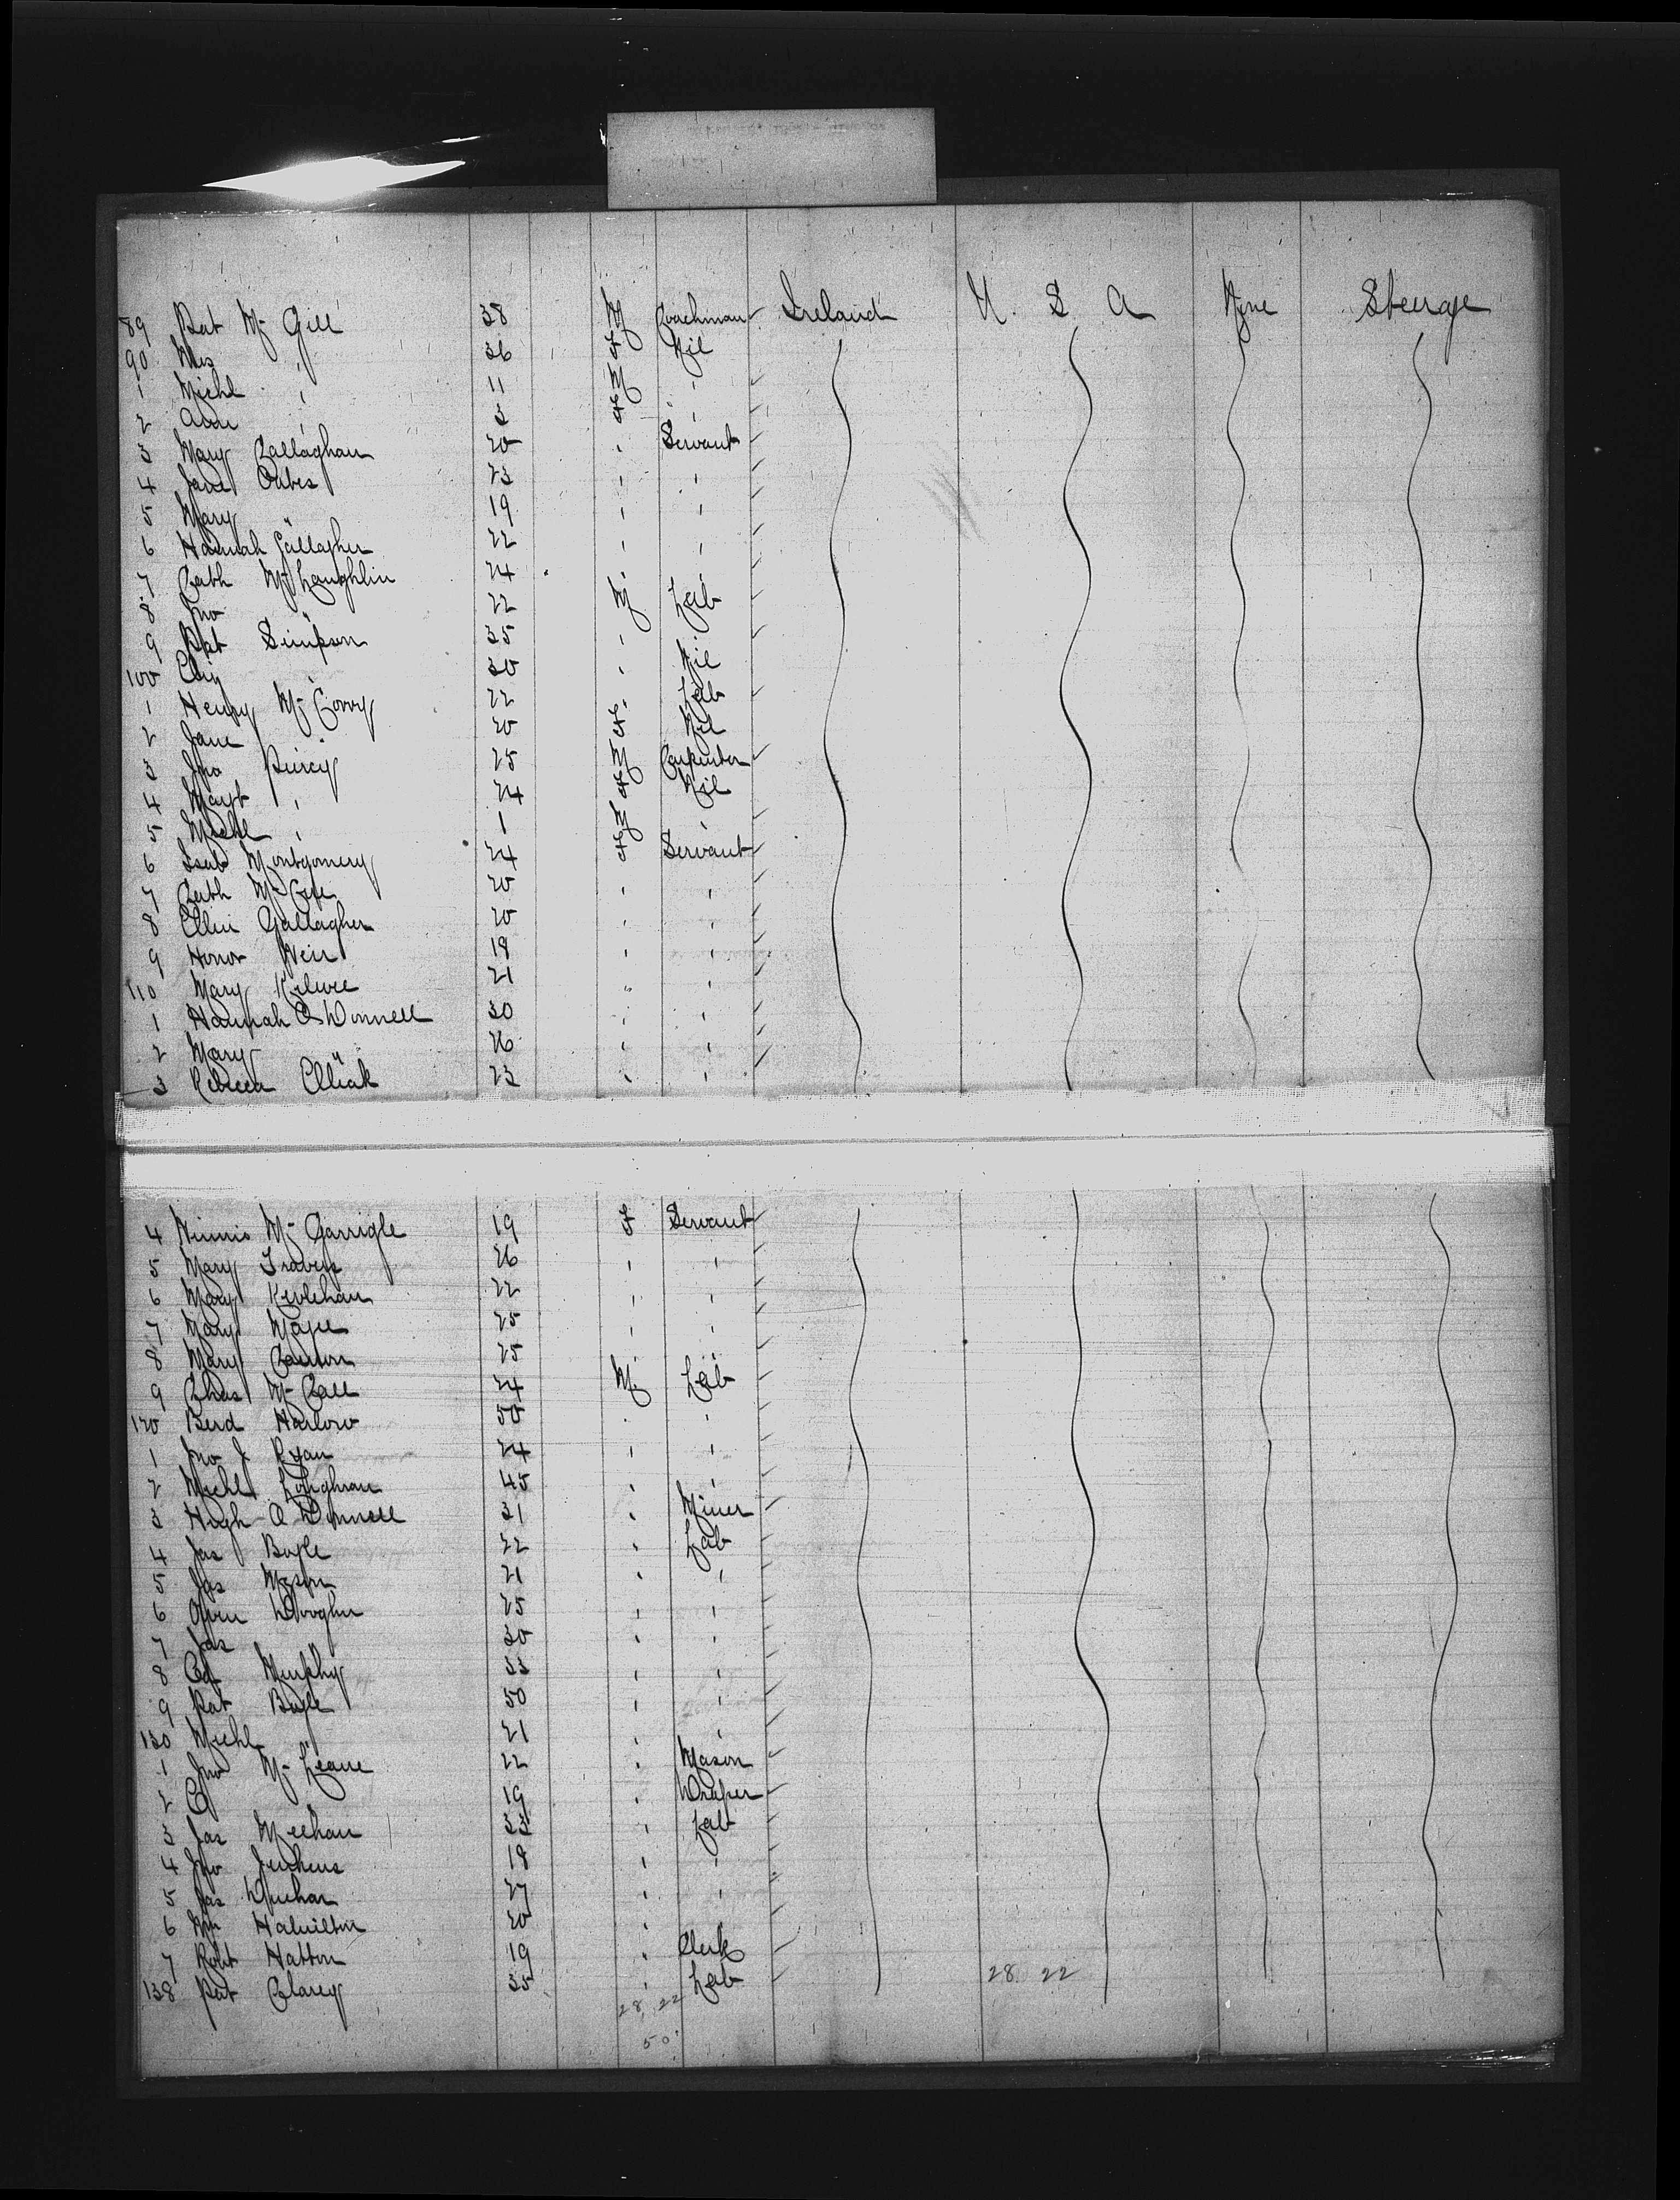 89 Pat Mc Gill 38 M Coachman Ireland U S A None Steerage
90 Mrs " 36 F Nil
1 Michl " 11 M "
2 Ann " 3 F "
3 Mary Callaghan 20 " Servant
4 Jane Oates 23 " "
5 Mary " 19 " "
6 Hannah Gallagher 22 " "
7 Cath McLaughlin 24 " "
8 Jno " 22 M Lab
9 Pat Simpson 35 " "
100 " 30 " Nil
1 Henry Mc Corry 22 " Lab
2 Jane " 20 F Nil
3 Jno Piercy 25 M Carpenter
4 Margt " 24 F Nil
5 Michl " 1 M "
6 Isab Montgomery 24 F Servant
7 Cath Mc 20 " "
8 Ellen Gallagher 20 " "
9 Honor Weir 19 " "
110 Mary 21 " "
1 Hannah O'Donnell 30 " "
2 Mary " 26 " "
3 Rebecca Elliott 23 " "
4 Minnie Mc Garrigle 19 F Servant
5 Mary Travers 26 " "
6 Mary Kevlehan 22 " "
7 Mary Magee 25 " "
8 Mary Cannon 25 " "
9 Chas Mc Call 24 M Lab
120 Bernd Harlow 50 " "
1 Jno J Ryan 24 " "
2 Michl Loughran 45 " "
3 Hugh O Donnell 31 " Miner
4 Jas Boyle 22 " Lab
5 Jas Mason 21 " "
6 Owen 25 " "
7 Jas " 30 " "
8 Ed Murphy 33 " "
9 Pat Boyle 50 " "
130 Michl " 21 " "
1 Jno Mc Leane 22 " Mason
2 " 19 " Draper
3 Jas Meehan 33 " Lab
4 Jno Jenkins 18 " "
5 Jas 27 " "
6 Wm Hamilton 20 " "
7 Robt Hatton 19 " Clerk
138 Pat Clarey 35 " Lab 28 22
28 22
50